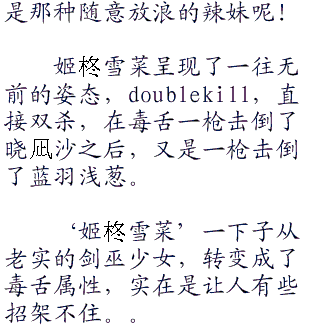 是那种随意放浪的辣妹呢！
姬柊雪菜呈现了一往无
前的姿态，doublekill，直
接双杀，在毒舌一枪击倒了
晓凪沙之后，又是一枪击倒
了蓝羽浅葱。
‘姬柊雪菜’一下子从
老实的剑巫少女，转变成了
毒舌属性，实在是让人有些
招架不住。。